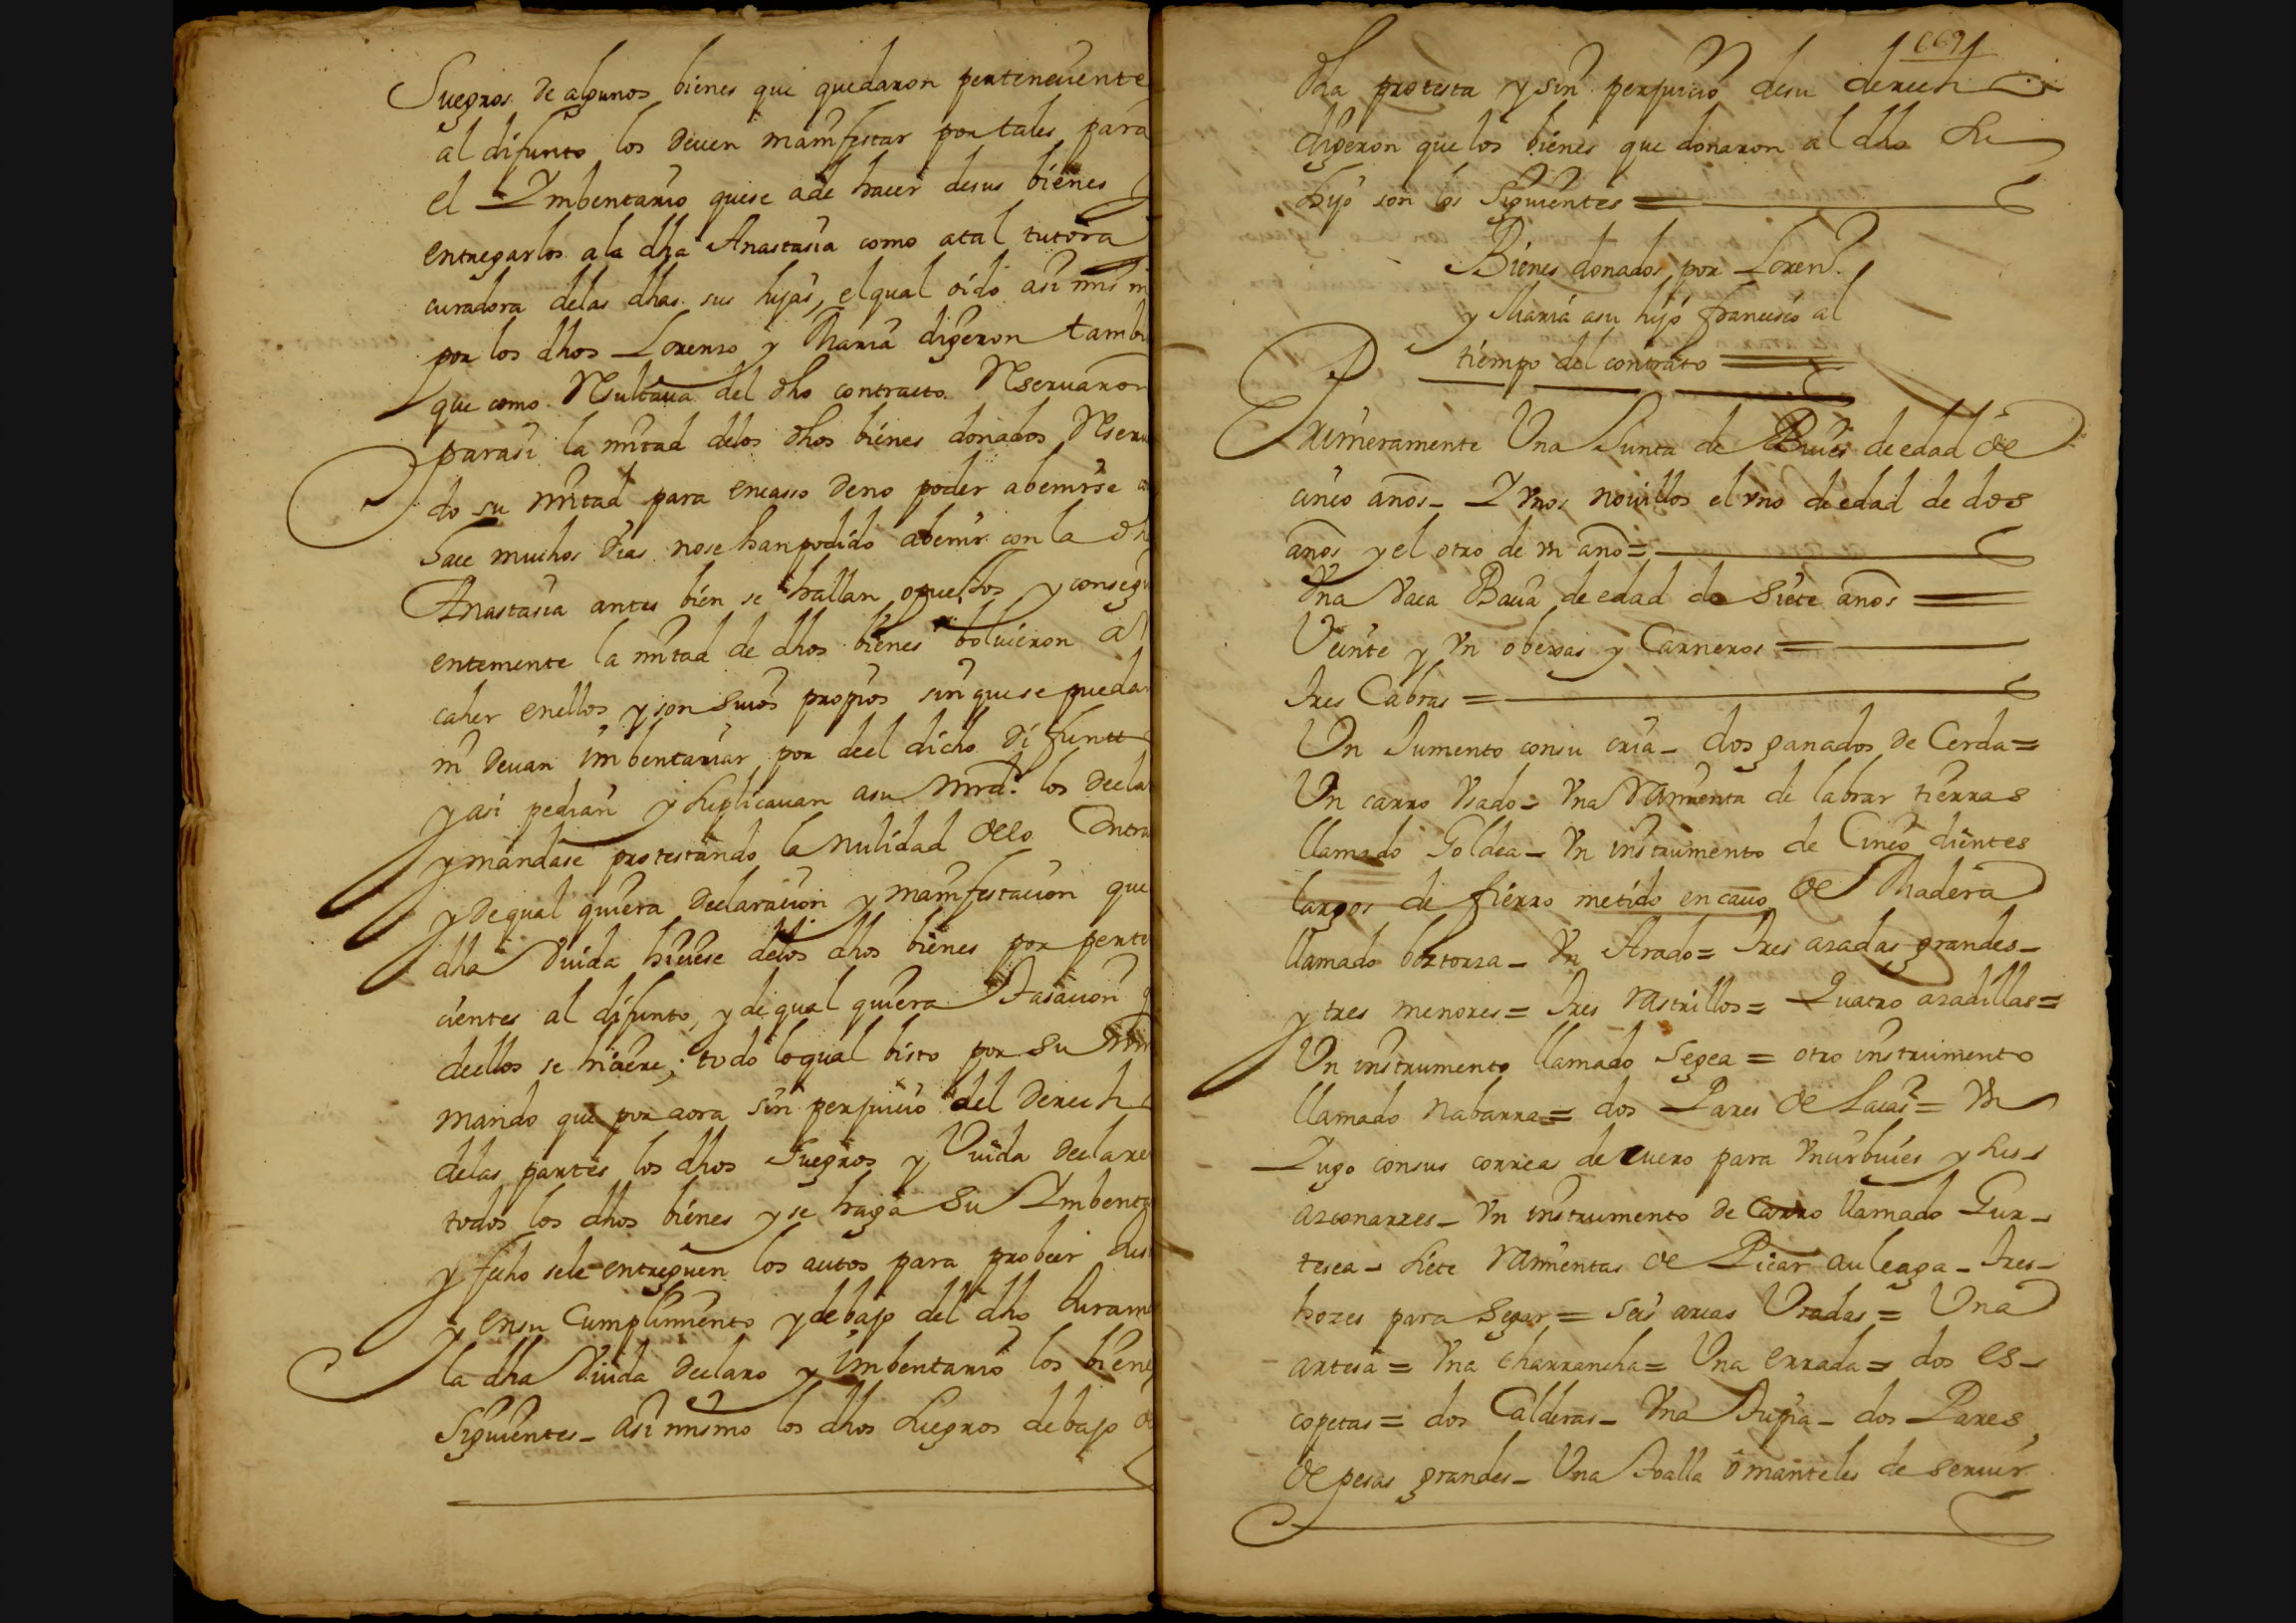 Suegros de algunos bienes que quedaron perteneciente
al difunto los deven manifestar por tales para
el Ymbentario quese a de hacer desus bienes y
entregarlos a la dha Anastasia como atal tutora
curadora delas dhas sus hijas, elqual oido asi mis m
por los dhos Lorenzo y Maria digeron tambi
que como Resultava del dho contracto Reservaron
parasi la mitad delos dhos bienes donados Reserva
do su mitad para encaso deno poder abenirse
hace muchos dias nose han podido abenir con la dh
Anastasia antes bien se hallan opuestos y consegu
entemente la mitad de dhos bienes bolvieron a
caher enellos y son suios propios sin quese pueda
ni devan imbentariar por deel dicho difunto
y asi pedian y suplicavan asu mrd. los decla
y mandase protestando la nulidad delo Contra
y dequal quiera declaracion y manifestacion que
dha viuda hiciese delos dhos bienes por perte
cientes al difunto, y de qual quiera tasacion q
deellos se hiciere; todo loqual visto por su mrd
mando que por aora sin perjuicio del derech
delas partes los dhos Suegros y Viuda declare
todos los dhos bienes y se haga su Ymbenta
y fecho sele entreguen los autos para probeer Jus
y ensu Cumplimiento y debajo del dho Juram
la dha Viuda declaro y imbentario los biene
Siguientes - asi mismo los dhos Suegros debajo d
669
dha protesta y sin perjuicio desu derech
digeron que los bienes que donaron al dho su
hijo son los siguientes =
Bienes donados por Loren.
y Maria asu hijo francisco al
tiempo del contrato =
Primeramente Una Junta de Bueis de edad de
cinco anos - Y vnos novillos el vno de edad de dos
anos y el otro de vn ano =
Vna Vaca Baua de edad de siete anos =
Veinte y vn obejas y Carneros =
Tres Cabras =
Un Jumento consu cria - dos ganados de Cerda =
Un carro Vsado - Vna ramienta de labrar tierras
llamado Goldea - Vn instrumento de Cinco dientes
largos de fierro metido en cauo de Madera
llamado bortorza - Vn Arado = Tres azadas grandes -
y tres menores = Tres rastrillos = Quatro azadillas =
Un instrumento llamado segea = otro instrumento
llamado nabarra = dos Pares de Laias = Vn
Yugo consus correas de cuero para Vncirbuies y sus
azconarres - Vn instrumento de Carro llamado Gur-
tesea - siete ramientas de Picar auleaga - Tres -
hozes para segar = seis arcas Vsadas = Una
artesa = Vna charrancha = Una errada = dos es-
copetas = dos Calderas - Vna - dos Pares
de pesas grandes - Una toalla o manteles de servir